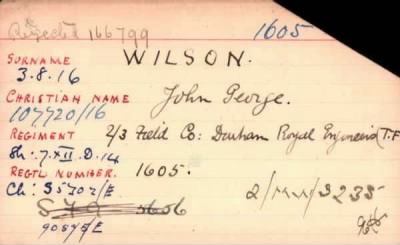 Rejected 166799 1605
SURNAME WILSON.
3.8.16
CHRISTIAN NAME John George.
107720/16
REGIMENT 2/3 Field Co: Durham Royal Engineers (T.F
Sh: 7.XII.D.14
REGTL NUMBER. 1605.
Ch: 35702/E 2/MM/3235
5656
90575/E